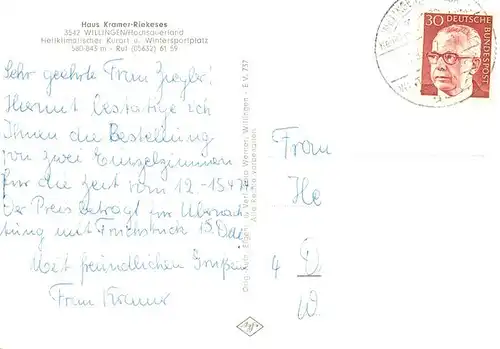 Haus Kramer-Riekeses
3542 WILLINGEN/Hochsauerland
Heilklimatischer Kurort u. Wintersportplatz
580-843 m - Ruf (05632) 61 59
30 DEUTSCHE
BUNDESPOST
Sehr geehrte Frau Ziegler!
Hiermit bestätige ich
Ihnen die Bestellung
von zwei Einzelzimmern
für die Zeit vom 12.-15.4.74.
Der Preis beträgt für Übernach
tung mit Frühstück 15.
Mit freundlichen Grüßen
Frau Kramer
Verlag Foto Werner, Willingen - E.V. 757
Alle Rechte vorbehalten
Agfa
Frau
He
4 D
W